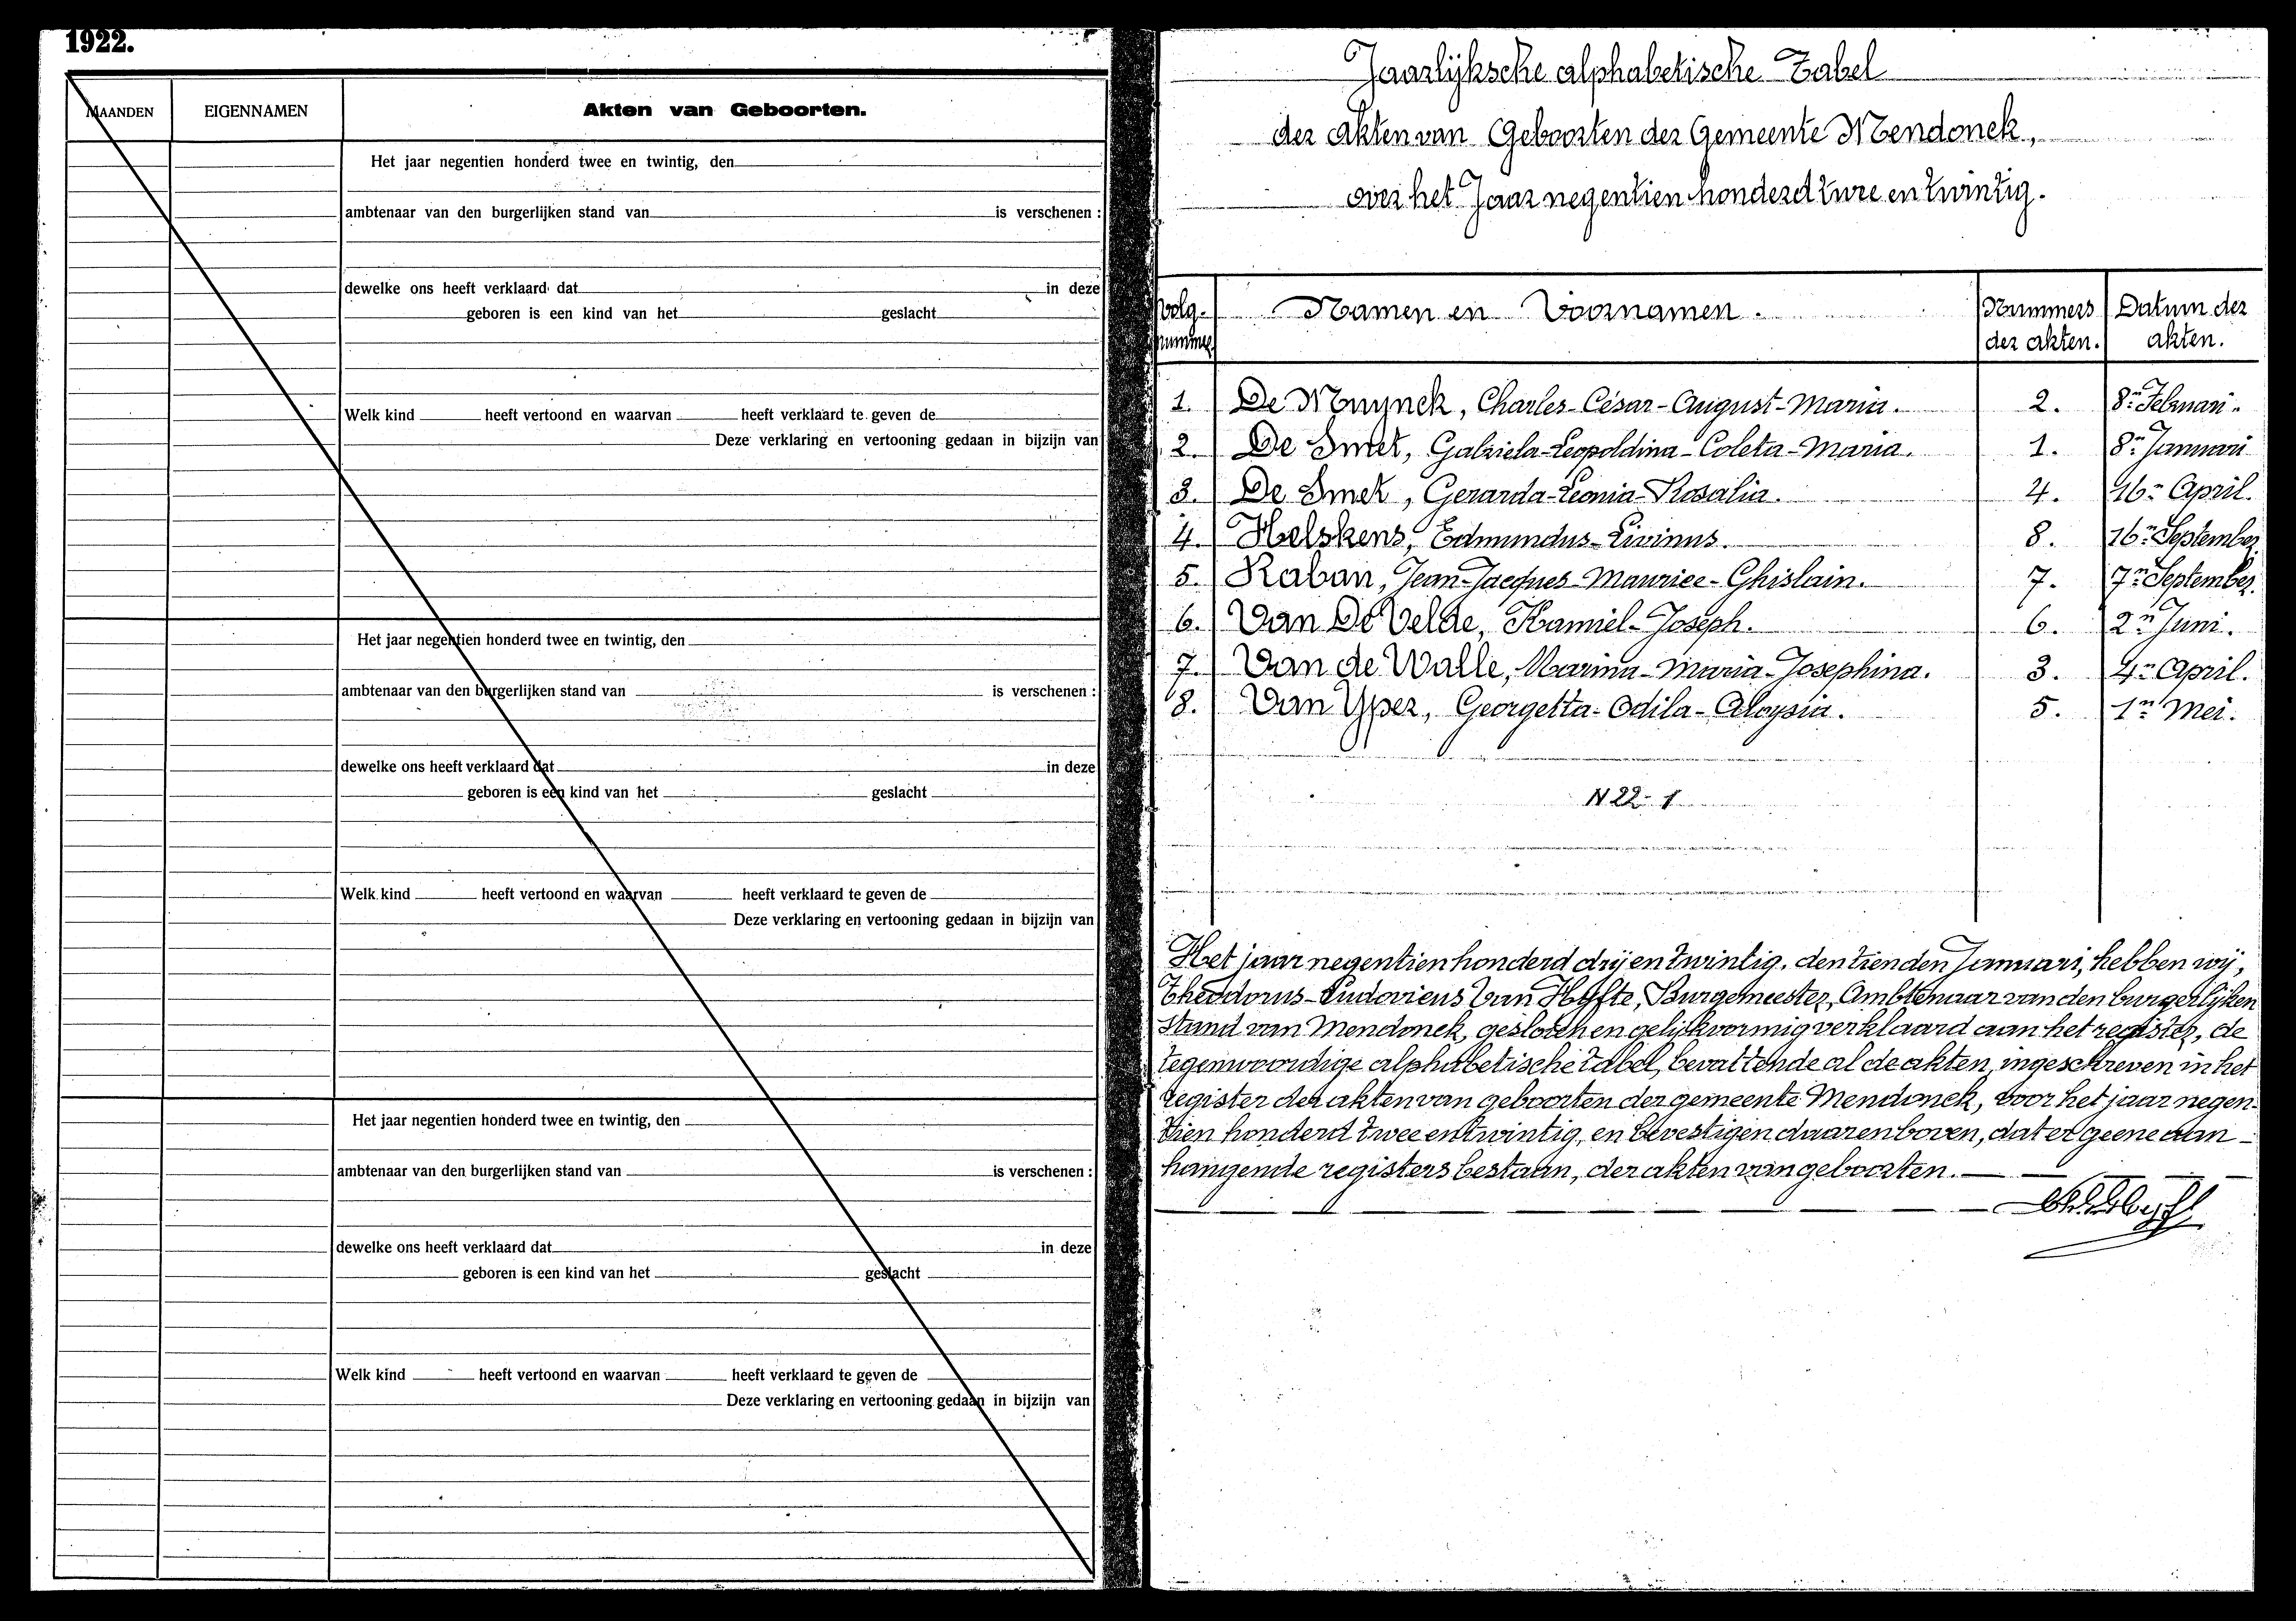 1922.
MAANDEN
EIGENNAMEN
Akten van Geboorten.
Het jaar negentien honderd twee en twintig, den
ambtenaar van den burgerlijken stand van is verschenen :
dewelke ons heeft verklaard dat in deze
geboren is een kind van het geslacht
Welk kind heeft vertoond en waarvan heeft verklaard te geven de
Deze verklaring en vertooning gedaan in bijzijn van
Het jaar negentien honderd twee en twintig, den
ambtenaar van den burgerlijken stand van is verschenen :
dewelke ons heeft verklaard dat in deze
geboren is een kind van het geslacht
Welk kind heeft vertoond en waarvan heeft verklaard te geven de
Deze verklaring en vertooning gedaan in bijzijn van
Het jaar negentien honderd twee en twintig, den
ambtenaar van den burgerlijken stand van is verschenen :
dewelke ons heeft verklaard dat in deze
geboren is een kind van het geslacht
Welk kind heeft vertoond en waarvan heeft verklaard te geven de
Deze verklaring en vertooning gedaan in bijzijn van
Jaarlijksche alphabetische Tabel
der akten van Geboorten der Gemeente Mendonck,
over het Jaar negentien honderd twee en twintig.
Volg-nummer Namen en Voornamen. Nummers der akten. Datum der akten.
1. De Muynck, Charles-César-August-Maria. 2. 8n Februari.
2. De Smet, Gabriela-Leopoldina-Coleta-Maria. 1. 8n Januari
3. De Smet, Gerarda-Leonia-Rosalia. 4. 16n April.
4. Helskens, Edmundus-Livinus. 8. 16n September
5. Raban, Jean-Jacques-Maurice-Ghislain. 7. 7n September.
6. Van De Velde, Kamiel-Joseph. 6. 2n Juni.
7. Van de Walle, Marina-Maria-Josephina. 3. 4n April.
8. Van Yper, Georgetta-Odila-Aloysia. 5. 1n Mei.
N 22-1
Het jaar negentien honderd drij en twintig, den tienden Januari, hebben wij,
Theodorus-Ludovicus Van Hyfte, Burgemeester, Ambtenaar van den burgerlijken
stand van Mendonck, gesloten en gelijkvormig verklaard aan het register, de
tegenwoordige alphabetische tabel, bevattende al de akten, ingeschreven in het
register der akten van geboorten der gemeente Mendonck, voor het jaar negen-
tien honderd twee en twintig, en bevestigen daarenboven, dat er geene aan-
hangende registers bestaan, der akten van geboorten.